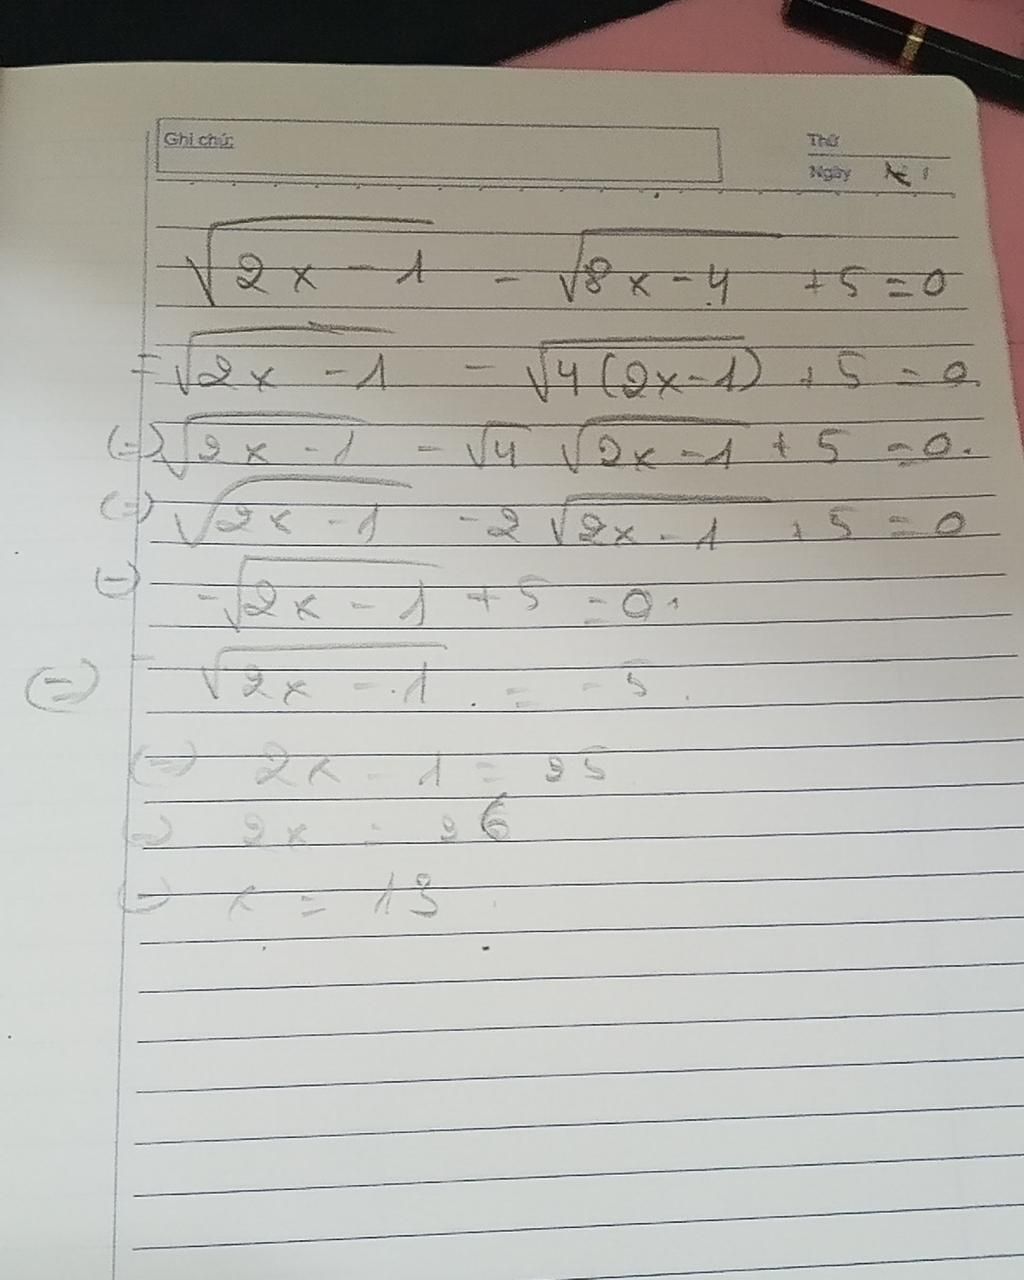 Ghi chú:
Thứ
Ngày
√(2x - 1) - √(8x - 4) + 5 = 0
= √(2x - 1) - √(4(2x-1)) + 5 = 0.
(=) √(2x - 1) - √4 √(2x - 1) + 5 = 0.
(=) √(2x - 1) - 2 √(2x - 1) + 5 = 0
(=) -√(2x - 1) + 5 = 0.
(=) -√(2x - 1) = -5.
(=) 2x - 1 = 25
(=) 2x = 26
(=) x = 13